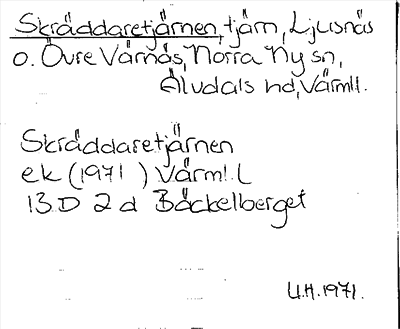 Skräddaretjärnen, tjärn, Ljusnäs
o. Övre Värnäs, Norra Ny sn,
Älvdals hd, Värml.
Skräddaretjärnen
ek (1971) Värml. L
13 D 2 d Bäckelberget
U.H. 1971.